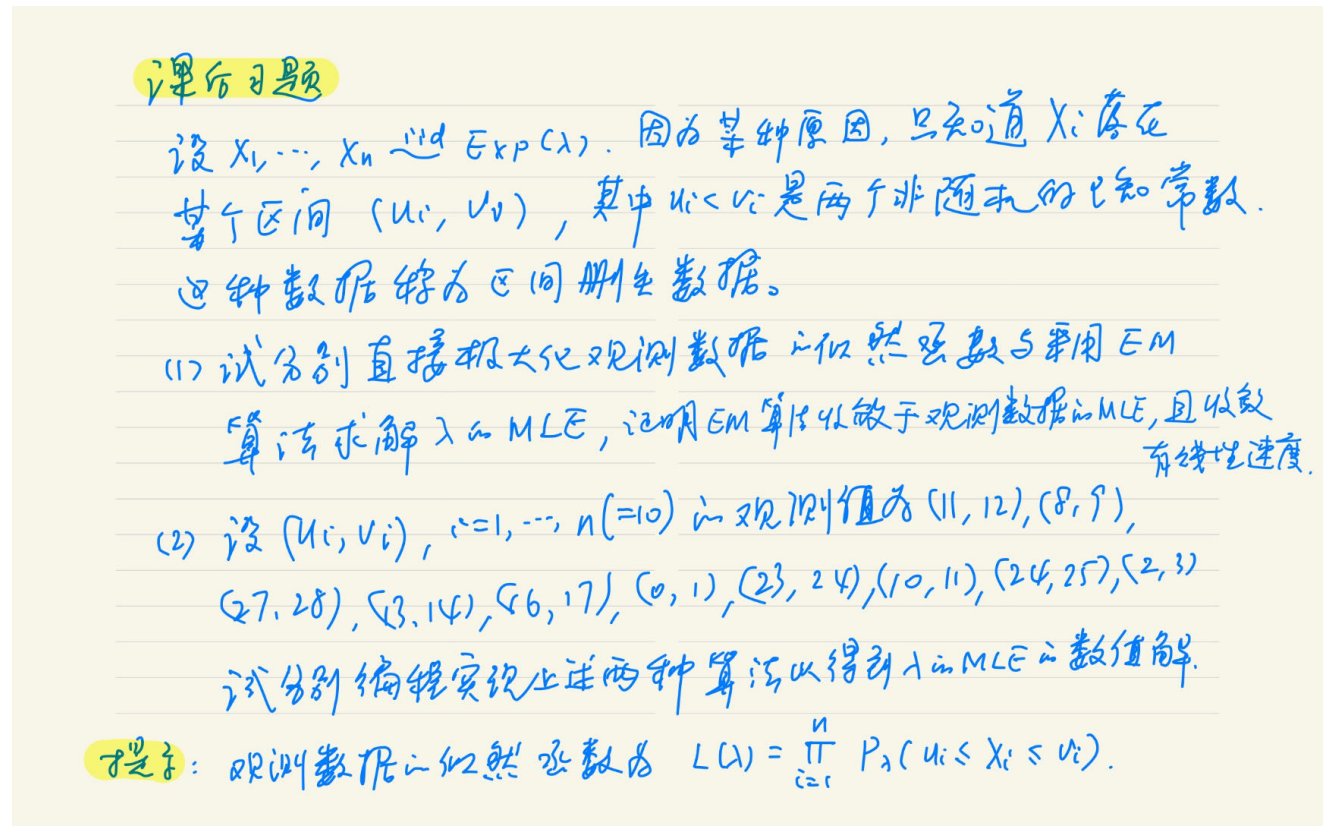 课后习题
设 X₁, ..., Xₙ iid Exp(λ). 因为某种原因, 只知道 Xᵢ 落在
某个区间 (uᵢ, vᵢ), 其中 uᵢ < vᵢ 是两个非随机的已知常数.
这种数据称为区间删失数据。
(1) 试分别直接极大化观测数据的似然函数与采用 EM
算法求解 λ 的 MLE, 证明EM算法收敛于观测数据的MLE, 且收敛
有线性速度.
(2) 设 (uᵢ, vᵢ), i=1, ..., n(=10) 的观测值为 (11, 12), (8, 9),
(27, 28), (13, 14), (16, 17), (0, 1), (23, 24), (10, 11), (24, 25), (2, 3)
试分别编程实现上述两种算法以得到 λ 的 MLE 的数值解.
提示: 观测数据的似然函数为 L(λ) = ∏ᵢ₌₁ⁿ P_λ(uᵢ ≤ Xᵢ ≤ vᵢ).